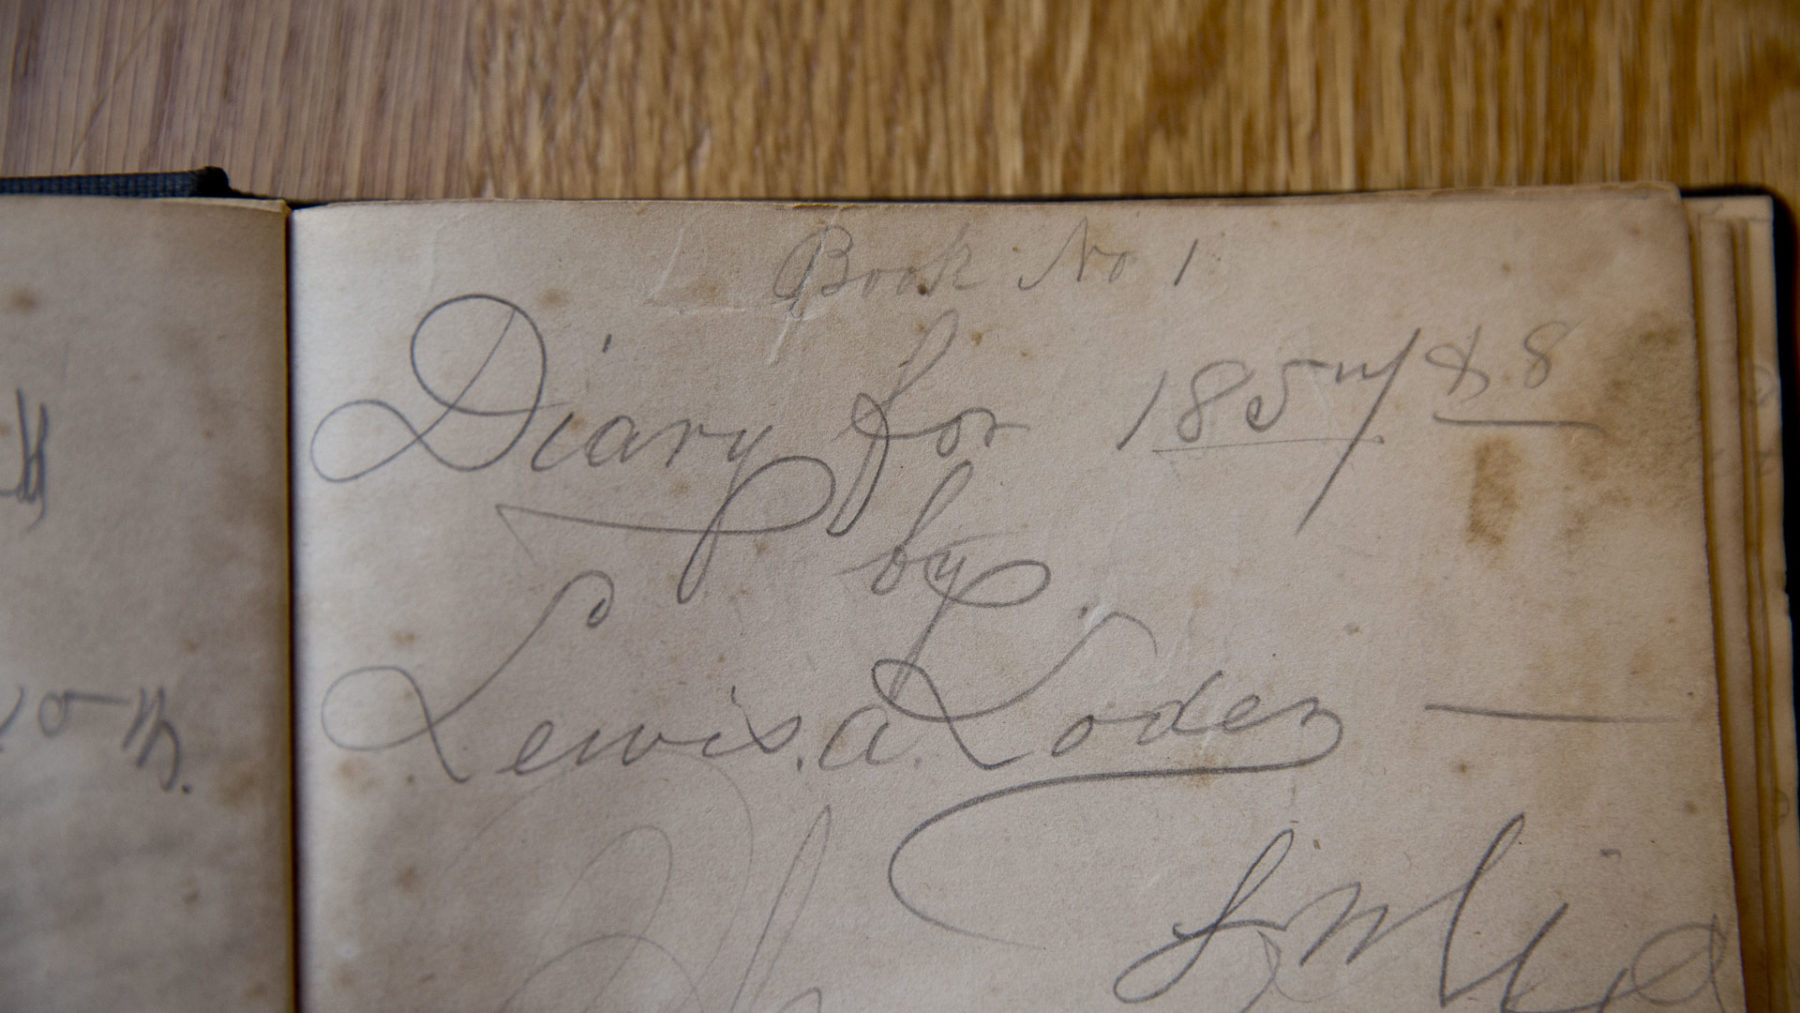 Book No 1
Diary for 1857 & 8
by
Lewis. A. Loder